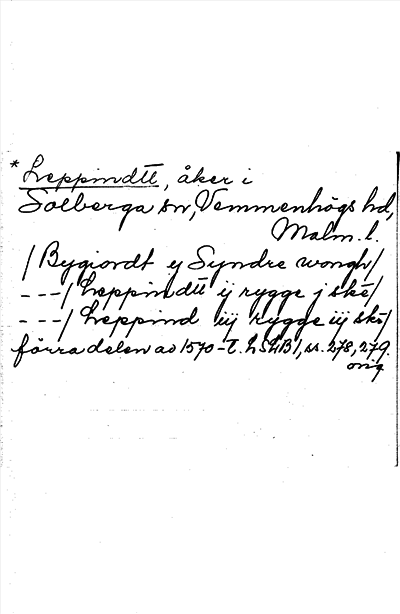 * Leppindtt, åker i
Solberga sn, Vemmenhögs hd,
Malm. l.
/ Bygiordt ij Syndre wongh /
---/ Leppindtt ij rygge j ske /
---/ Leppind iij rygge iij ske /
förra delen av 1570-t. LSLB1, ss. 278, 279.
orig